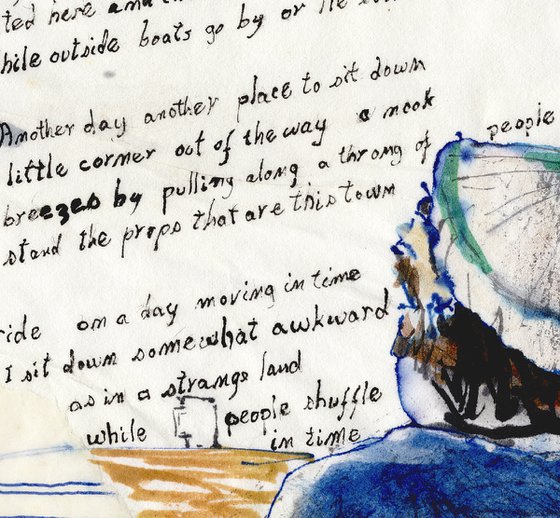 ted here and
hile outside boats go by or
Another day another place to sit down
little corner out of the way a nook
people
breezes by pulling along a throng of
stand the props that are this town
ride on a day moving in time
I sit down somewhat awkward
as in a strange land
while people shuffle
in time